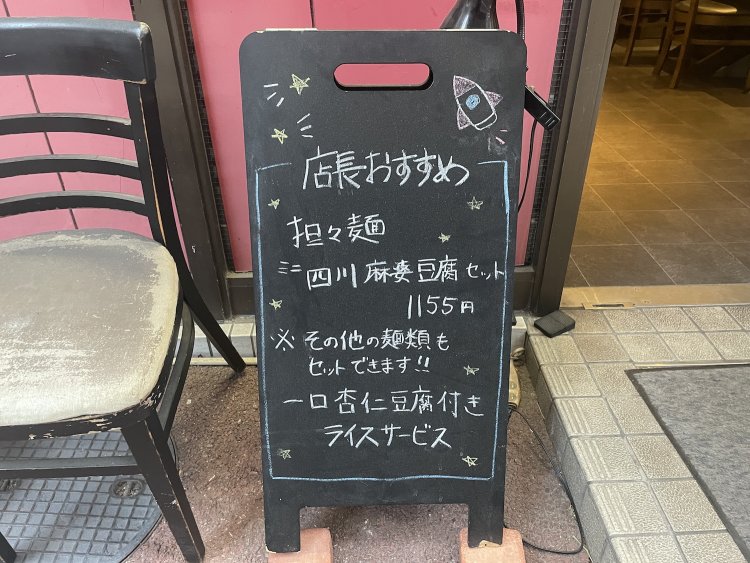 店長おすすめ
担々麺
ミニ四川麻婆豆腐セット
1155円
※その他の麺類も
セットできます!!
一口杏仁豆腐付き
ライスサービス